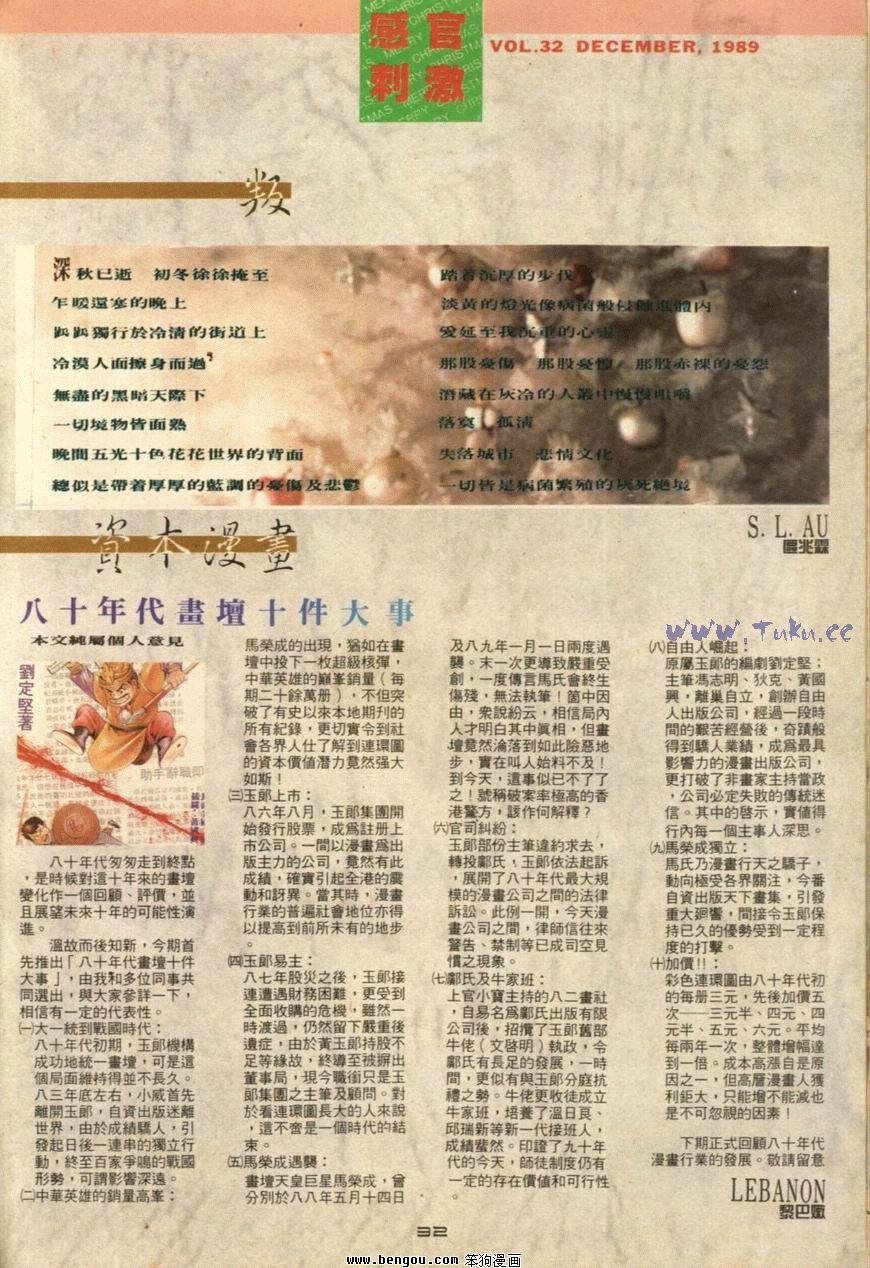 感官
刺激
VOL.32 DECEMBER, 1989
叛
深秋已逝 初冬徐徐掩至
乍暖還寒的晚上
踽踽獨行於冷清的街道上
冷漠人面擦身而過
無盡的黑暗天際下
一切境物皆面熟
晚間五光十色花花世界的背面
總似是帶着厚厚的藍調的憂傷及悲鬱
踏着沉厚的步伐
淡黃的燈光像病菌般侵蝕進體內
愛延至我沉重的心靈
那股憂傷 那股憂惶 那股赤裸的憂怨
潛藏在灰冷的人叢中慢慢咀嚼
落寞 孤清
失落城市 悲情文化
一切皆是病菌繁殖的灰死絕境
S. L. AU
區兆霖
資本漫畫
八十年代畫壇十件大事
本文純屬個人意見
劉定堅著
助手辭職即
八十年代匆匆走到終點
,是時候對這十年來的畫壇
變化作一個回顧、評價,並
且展望未來十年的可能性演
進。
溫故而後知新,今期首
先推出「八十年代畫壇十件
大事」,由我和多位同事共
同選出,與大家參詳一下,
相信有一定的代表性。
㈠大一統到戰國時代:
八十年代初期,玉郎機構
成功地統一畫壇,可是這
個局面維持得並不長久。
八三年底左右,小威首先
離開玉郎,自資出版迷離
世界,由於成績驕人,引
發起日後一連串的獨立行
動,終至百家爭鳴的戰國
形勢,可謂影響深遠。
㈡中華英雄的銷量高峯:
馬榮成的出現,猶如在畫
壇中投下一枚超級核彈,
中華英雄的巔峯銷量(每
期二十餘萬册),不但突
破了有史以來本地期刊的
所有紀錄,更切實令到社
會各界人仕了解到連環圖
的資本價值潛力竟然强大
如斯!
㈢玉郎上市:
八六年八月,玉郎集團開
始發行股票,成爲註册上
市公司。一間以漫畫爲出
版主力的公司,竟然有此
成績,確實引起全港的震
動和訝異。當其時,漫畫
行業的普遍社會地位亦得
以提高到前所未有的地步
。
㈣玉郎易主:
八七年股災之後,玉郎接
連遭遇財務困難,更受到
全面收購的危機,雖然一
時渡過,仍然留下嚴重後
遺症,由於黃玉郎持股不
足等緣故,終導至被摒出
董事局,現今職銜只是玉
郎集團之主筆及顧問。對
於看連環圖長大的人來說
,這不啻是一個時代的結
束。
㈤馬榮成遇襲:
畫壇天皇巨星馬榮成,曾
分別於八八年五月十四日
及八九年一月一日兩度遇
襲。末一次更導致嚴重受
創,一度傳言馬氏會終生
傷殘,無法執筆!箇中因
由,衆說紛云,相信局內
人才明白其中眞相,但畫
壇竟然淪落到如此險惡地
步,實在叫人始料不及!
到今天,這事似已不了了
之!號稱破案率極高的香
港警方,該作何解釋?
㈥官司糾紛:
玉郎部份主筆違約求去,
轉投鄺氏,玉郎依法起訴
,展開了八十年代最大規
模的漫畫公司之間的法律
訴訟。此例一開,今天漫
畫公司之間,律師信往來
警告、禁制等已成司空見
慣之現象。
㈦鄺氏及牛家班:
上官小寶主持的八二畫社
,自易名爲鄺氏出版有限
公司後,招攬了玉郎舊部
牛佬(文啓明)執政,令
鄺氏有長足的發展,一時
間,更似有與玉郎分庭抗
禮之勢。牛佬更收徒成立
牛家班,培養了溫日良、
邱瑞新等新一代接班人,
成績蜚然。印證了九十年
代的今天,師徒制度仍有
一定的存在價值和可行性
。
㈧自由人崛起:
原屬玉郎的編劇劉定堅;
主筆馮志明、狄克、黃國
興,離巢自立,創辦自由
人出版公司,經過一段時
間的艱苦經營後,奇蹟般
得到驕人業績,成爲最具
影響力的漫畫出版公司,
更打破了非畫家主持當政
,公司必定失敗的傳統迷
信。其中的啓示,實值得
行內每一個主事人深思。
㈨馬榮成獨立:
馬氏乃漫畫行天之驕子,
動向極受各界關注,今番
自資出版天下畫集,引發
重大廻響,間接令玉郎保
持已久的優勢受到一定程
度的打擊。
㈩加價!!:
彩色連環圖由八十年代初
的每册三元,先後加價五
次──三元半、四元、四
元半、五元、六元。平均
每兩年一次,整體增幅達
到一倍。成本高漲自是原
因之一,但高層漫畫人獲
利鉅大,只能增不能減也
是不可忽視的因素!
下期正式回顧八十年代
漫畫行業的發展。敬請留意
LEBANON
黎巴嫩
32
www.Tuku.cc
www.bengou.com 笨狗漫画